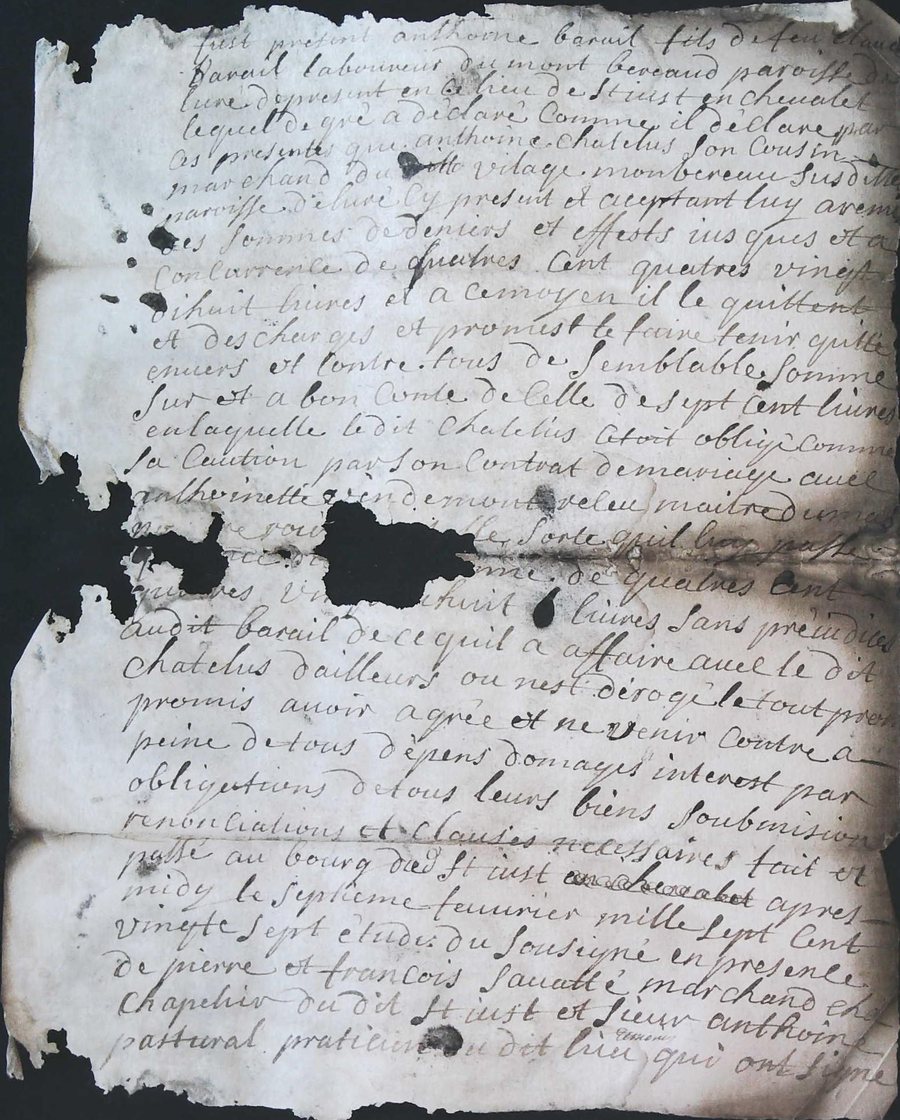 fust present anthoine barail fils de feu claud
barail laboureur du mont bereaud paroisse de
luré de present en ce lieu de st iust en chevalet
lequel de gré a déclaré Comme il déclare par
Ces presentes que anthoine chatelus son Cousin
marchand du vilage monbereau susditte
paroisse de luré Cy present et aceptant luy avemi
des sommes de deniers et effests iusques et a
Concurrence de quatres Cent quatres vingt
dihuit livres et a cemoyen il le quittent
et descharges et promest le faire tenir quitte
envers et Contre tous de semblable somme
sur et a bon Conte de Celle de sept Cent livres
en laquelle ledit chatelus étoit oblige comme
sa Caution par son Contrat de mariage avel
anthoinette maitre
sorte quil luy passe
de quatres Cent
vin dihuit livres sans préiudices
audit barail de ce quil a affaire avel le dit
chatelus dailleurs ou nest dérogé le tout prom
promis avoir agrée et ne venir Contre a
peine de tous dépens domages interest par
obligations de tous leurs biens soubmision
renonciations et Clauses necessaires fait et
passé au bourg dud st iust apres
midy le septieme feuvrier mille sept Cent
vingte sept étude du sousigné en presence
de pierre et francois savatté marchand
Chapelier du dit st iust et sieur anthoine
pastural praticien du dit lieu qui ont signé